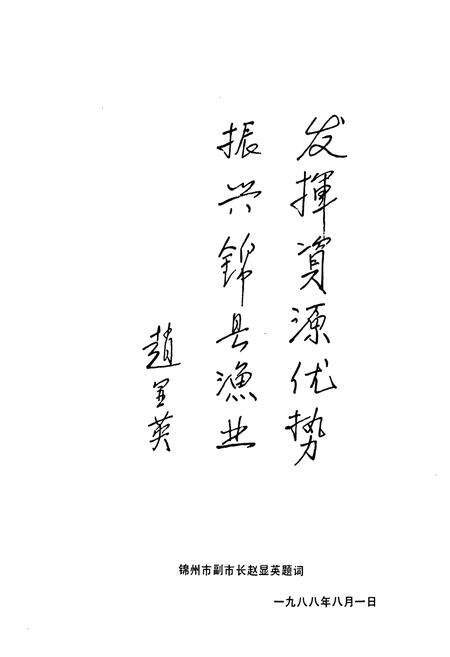 发揮資源优势
振兴錦县漁业
趙显英
锦州市副市长赵显英题词
一九八八年八月一日